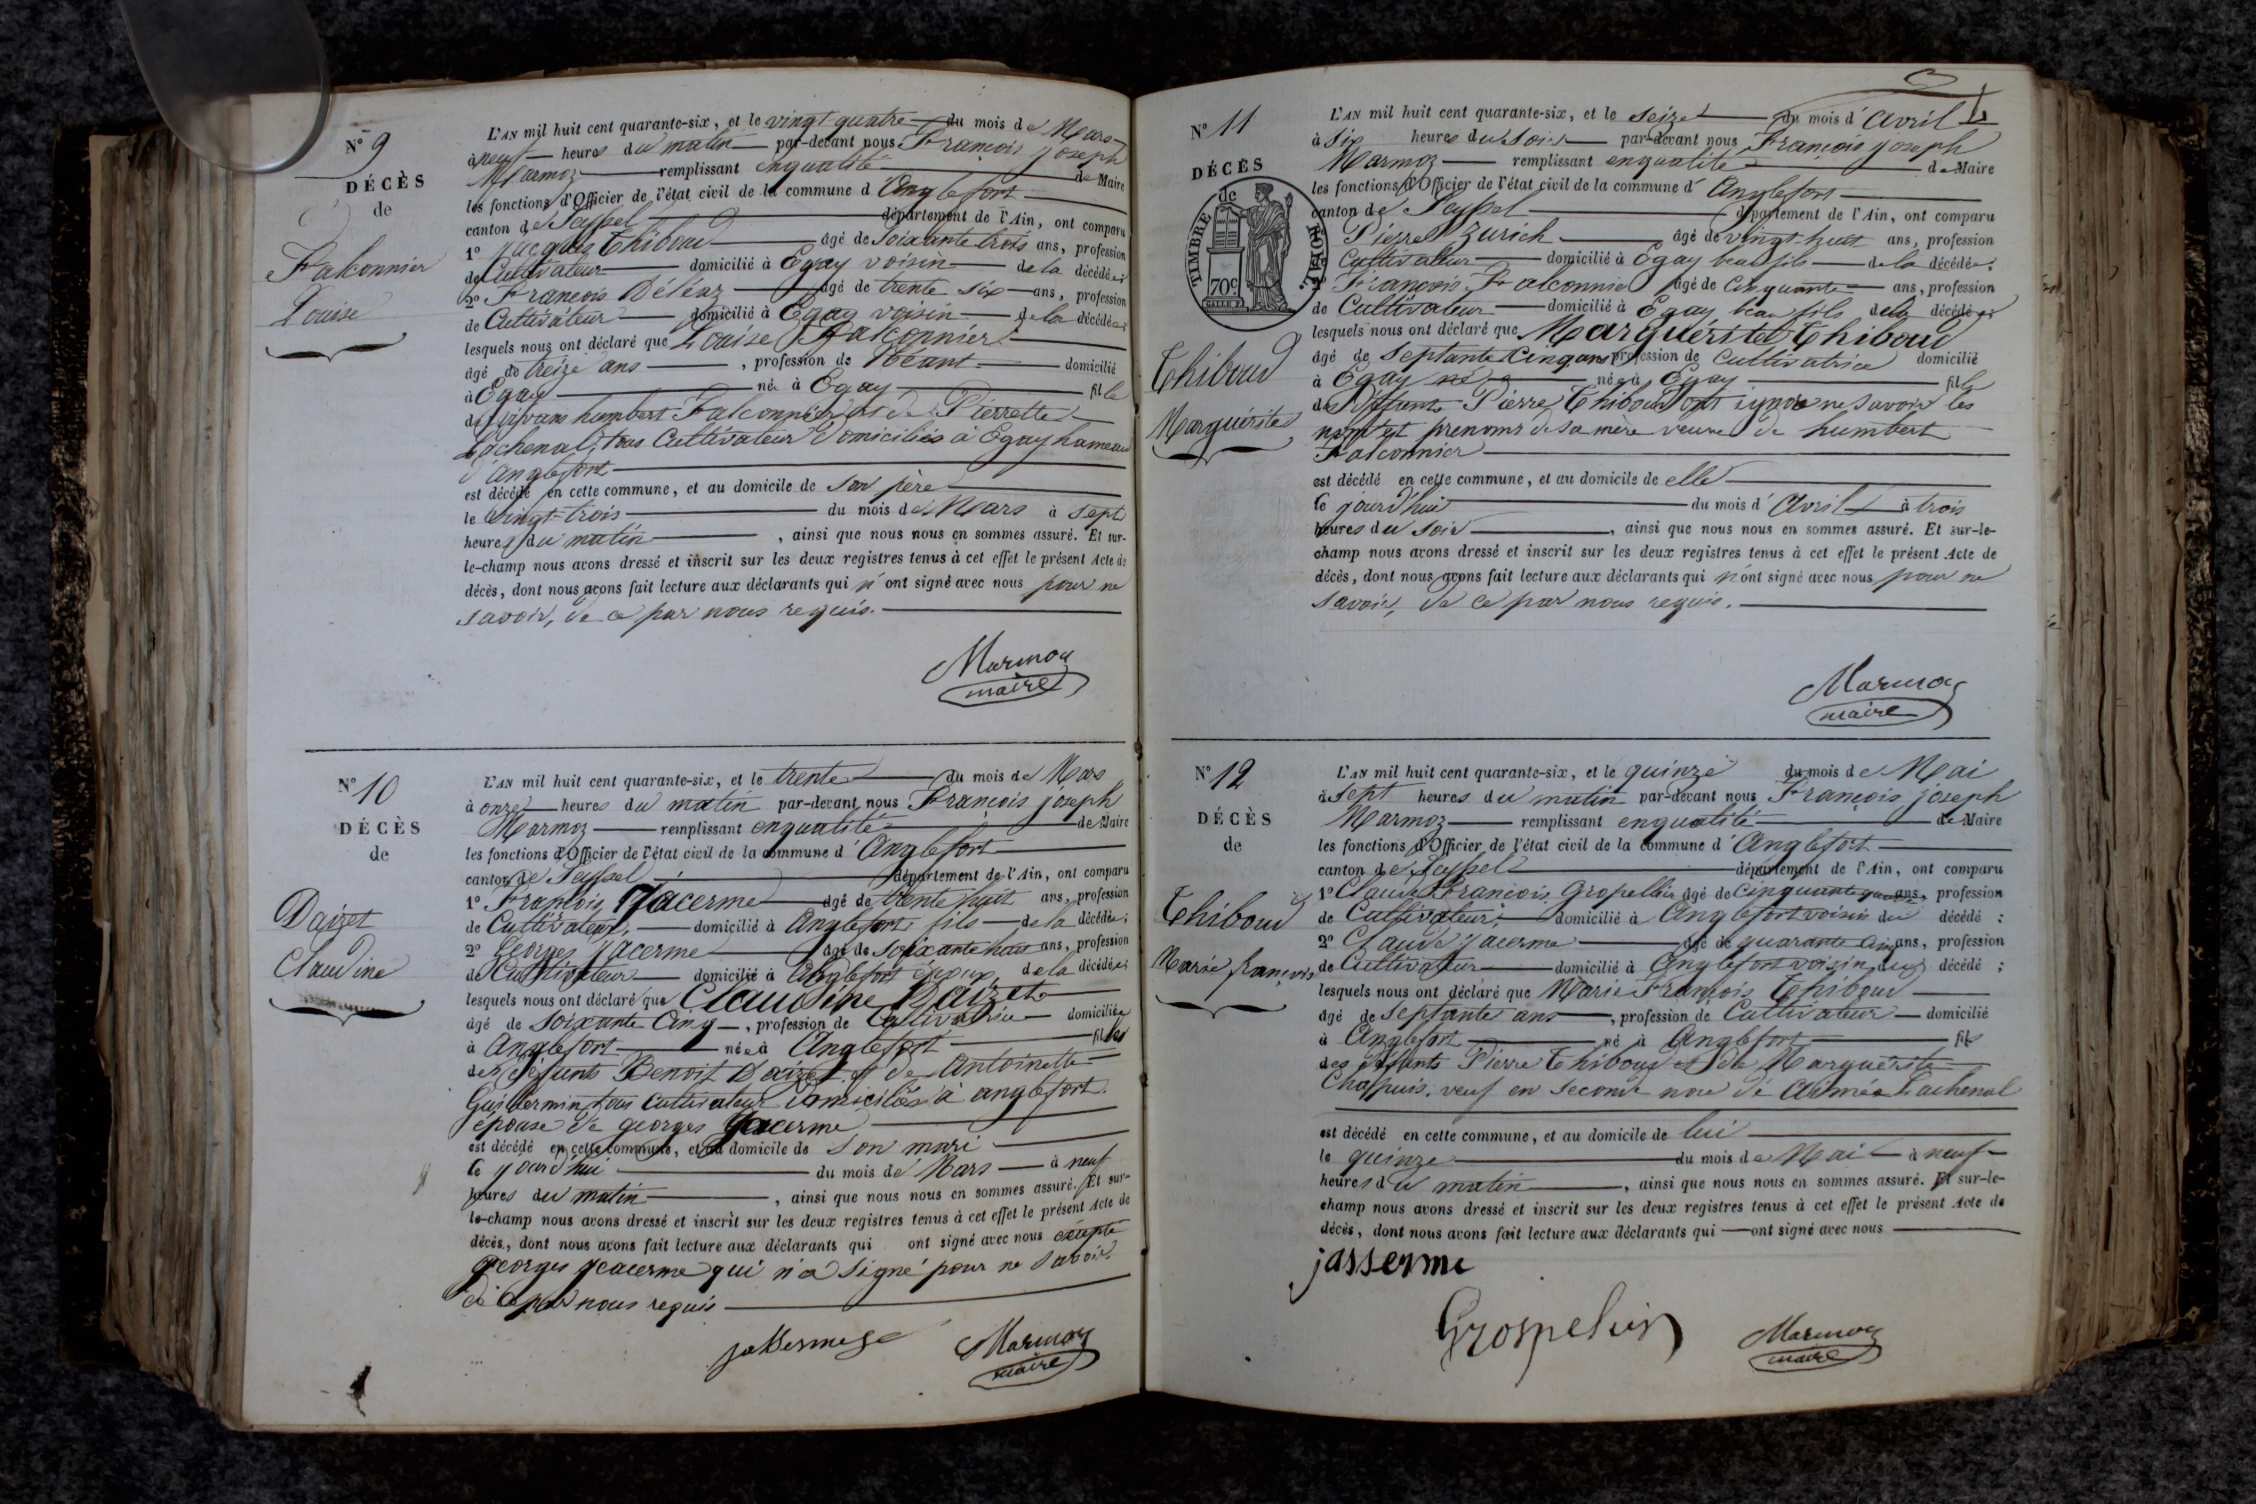 N° 9
DÉCÈS
de
Falconnier
Louise
L'AN mil huit cent quarante-six, et le vingt quatre du mois de Mars
à neuf heures du matin par-devant nous François joseph
Marmoz remplissant enqualité de Maire
les fonctions d'Officier de l'état civil de la commune d'Anglefort
canton de Seyssel département de l'Ain, ont comparu
1° Jacques Thiboud âgé de Soixante trois ans, profession
de Cultivateur domicilié à Egay voisin de la décédée;
2° François Déléaz âgé de trente six ans, profession
de Cultivateur domicilié à Egay voisin de la décédée;
lesquels nous ont déclaré que Louise Falconnier
âgé de treize ans, profession de Néant domicilié
à Egay née à Egay fille
de vivans humbert Falconnier et de Pierrette
Lachenal, tous Cultivateur Domiciliés à Egay hameau
d'Anglefort
est décédé en cette commune, et au domicile de son père
le vingt-trois du mois de Mars à sept
heures du matin, ainsi que nous nous en sommes assuré. Et sur-
le-champ nous avons dressé et inscrit sur les deux registres tenus à cet effet le présent Acte de
décès, dont nous avons fait lecture aux déclarants qui n'ont signé avec nous pour ne
savoir, de ce par nous requis.
Marmoz
maire
N° 10
DÉCÈS
de
Daizet
Claudine
L'AN mil huit cent quarante-six, et le trente du mois de Mars
à onze heures du matin par-devant nous François joseph
Marmoz remplissant enqualité de Maire
les fonctions d'Officier de l'état civil de la commune d'Anglefort
canton de Seyssel département de l'Ain, ont comparu
1° François Jacerme âgé de trente huit ans, profession
de Cultivateur, domicilié à Anglefort, fils de la décédée;
2° Georges Jacerme âgé de soixante huit ans, profession
de Cultivateur domicilié à Anglefort époux de la décédée;
lesquels nous ont déclaré que Claudine Daizet
âgé de soixante Cinq, profession de Cultivatrice domiciliée
à Anglefort née à Anglefort fille
des Défunts Benoit Daizet et de Antoinette
Guillermin, tous Cultivateur Domiciliés à anglefort.
épouse de georges Jacerme
est décédé en cette commune, et au domicile de son mari
le jourd'hui du mois de Mars à neuf
heures du matin, ainsi que nous nous en sommes assuré. Et sur-
le-champ nous avons dressé et inscrit sur les deux registres tenus à cet effet le présent Acte de
décès, dont nous avons fait lecture aux déclarants qui ont signé avec nous excepté
georges Jacerme qui n'a signé pour ne savoir
de ce par nous requis
Marmoz
maire
N° 11
DÉCÈS
de
TIMBRE ROYAL
70c
Thiboud
Marguérite
L'AN mil huit cent quarante-six, et le seize du mois d'Avril
à six heures du soir par-devant nous François joseph
Marmoz remplissant enqualité de Maire
les fonctions d'Officier de l'état civil de la commune d'Anglefort
canton de Seyssel département de l'Ain, ont comparu
Pierre Zurich âgé de vingt-huit ans, profession
Cultivateur domicilié à Egay beau fils de la décédée;
François Falconnier âgé de Cinquante ans, profession
de Cultivateur domicilié à Egay beau fils de la décédée;
lesquels nous ont déclaré que Marguérite Thiboud
âgé de Septante Cinq ans profession de Cultivatrice domicilié
à Egay née à Egay fille
de Défunts Pierre Thiboud ont ignore ne savoir les
nom et prenoms de sa mère veuve de humbert
Falconnier
est décédé en cette commune, et au domicile de elle
le jourd'hui du mois d'Avril à trois
heures du soir, ainsi que nous nous en sommes assuré. Et sur-le-
champ nous avons dressé et inscrit sur les deux registres tenus à cet effet le présent Acte de
décès, dont nous avons fait lecture aux déclarants qui n'ont signé avec nous pour ne
savoir, de ce par nous requis.
Marmoz
maire
N° 12
DÉCÈS
de
Thiboud
Marie françois
L'AN mil huit cent quarante-six, et le quinze du mois de Mai
à sept heures du matin par-devant nous François joseph
Marmoz remplissant enqualité de Maire
les fonctions d'Officier de l'état civil de la commune d'Anglefort
canton de Seyssel département de l'Ain, ont comparu
1° Claude François Gropellin âgé de Cinquante quatre ans, profession
de Cultivateur, domicilié à Anglefort voisin du décédé;
2° Claude Jacerme âgé de quarante Cinq ans, profession
de Cultivateur domicilié à Anglefort voisin du décédé;
lesquels nous ont déclaré que Marie François Thiboud
âgé de Septante ans, profession de Cultivateur domicilié
à Anglefort né à Anglefort fils
des défunts Pierre Thiboud et de Marguérite
Chappuis. veuf en seconde noce de Aimée Lachenal
est décédé en cette commune, et au domicile de lui
le quinze du mois de Mai à neuf
heures du matin, ainsi que nous nous en sommes assuré. Et sur-le-
champ nous avons dressé et inscrit sur les deux registres tenus à cet effet le présent Acte de
décès, dont nous avons fait lecture aux déclarants qui ont signé avec nous
jasserme
Grospelin
Marmoz
maire